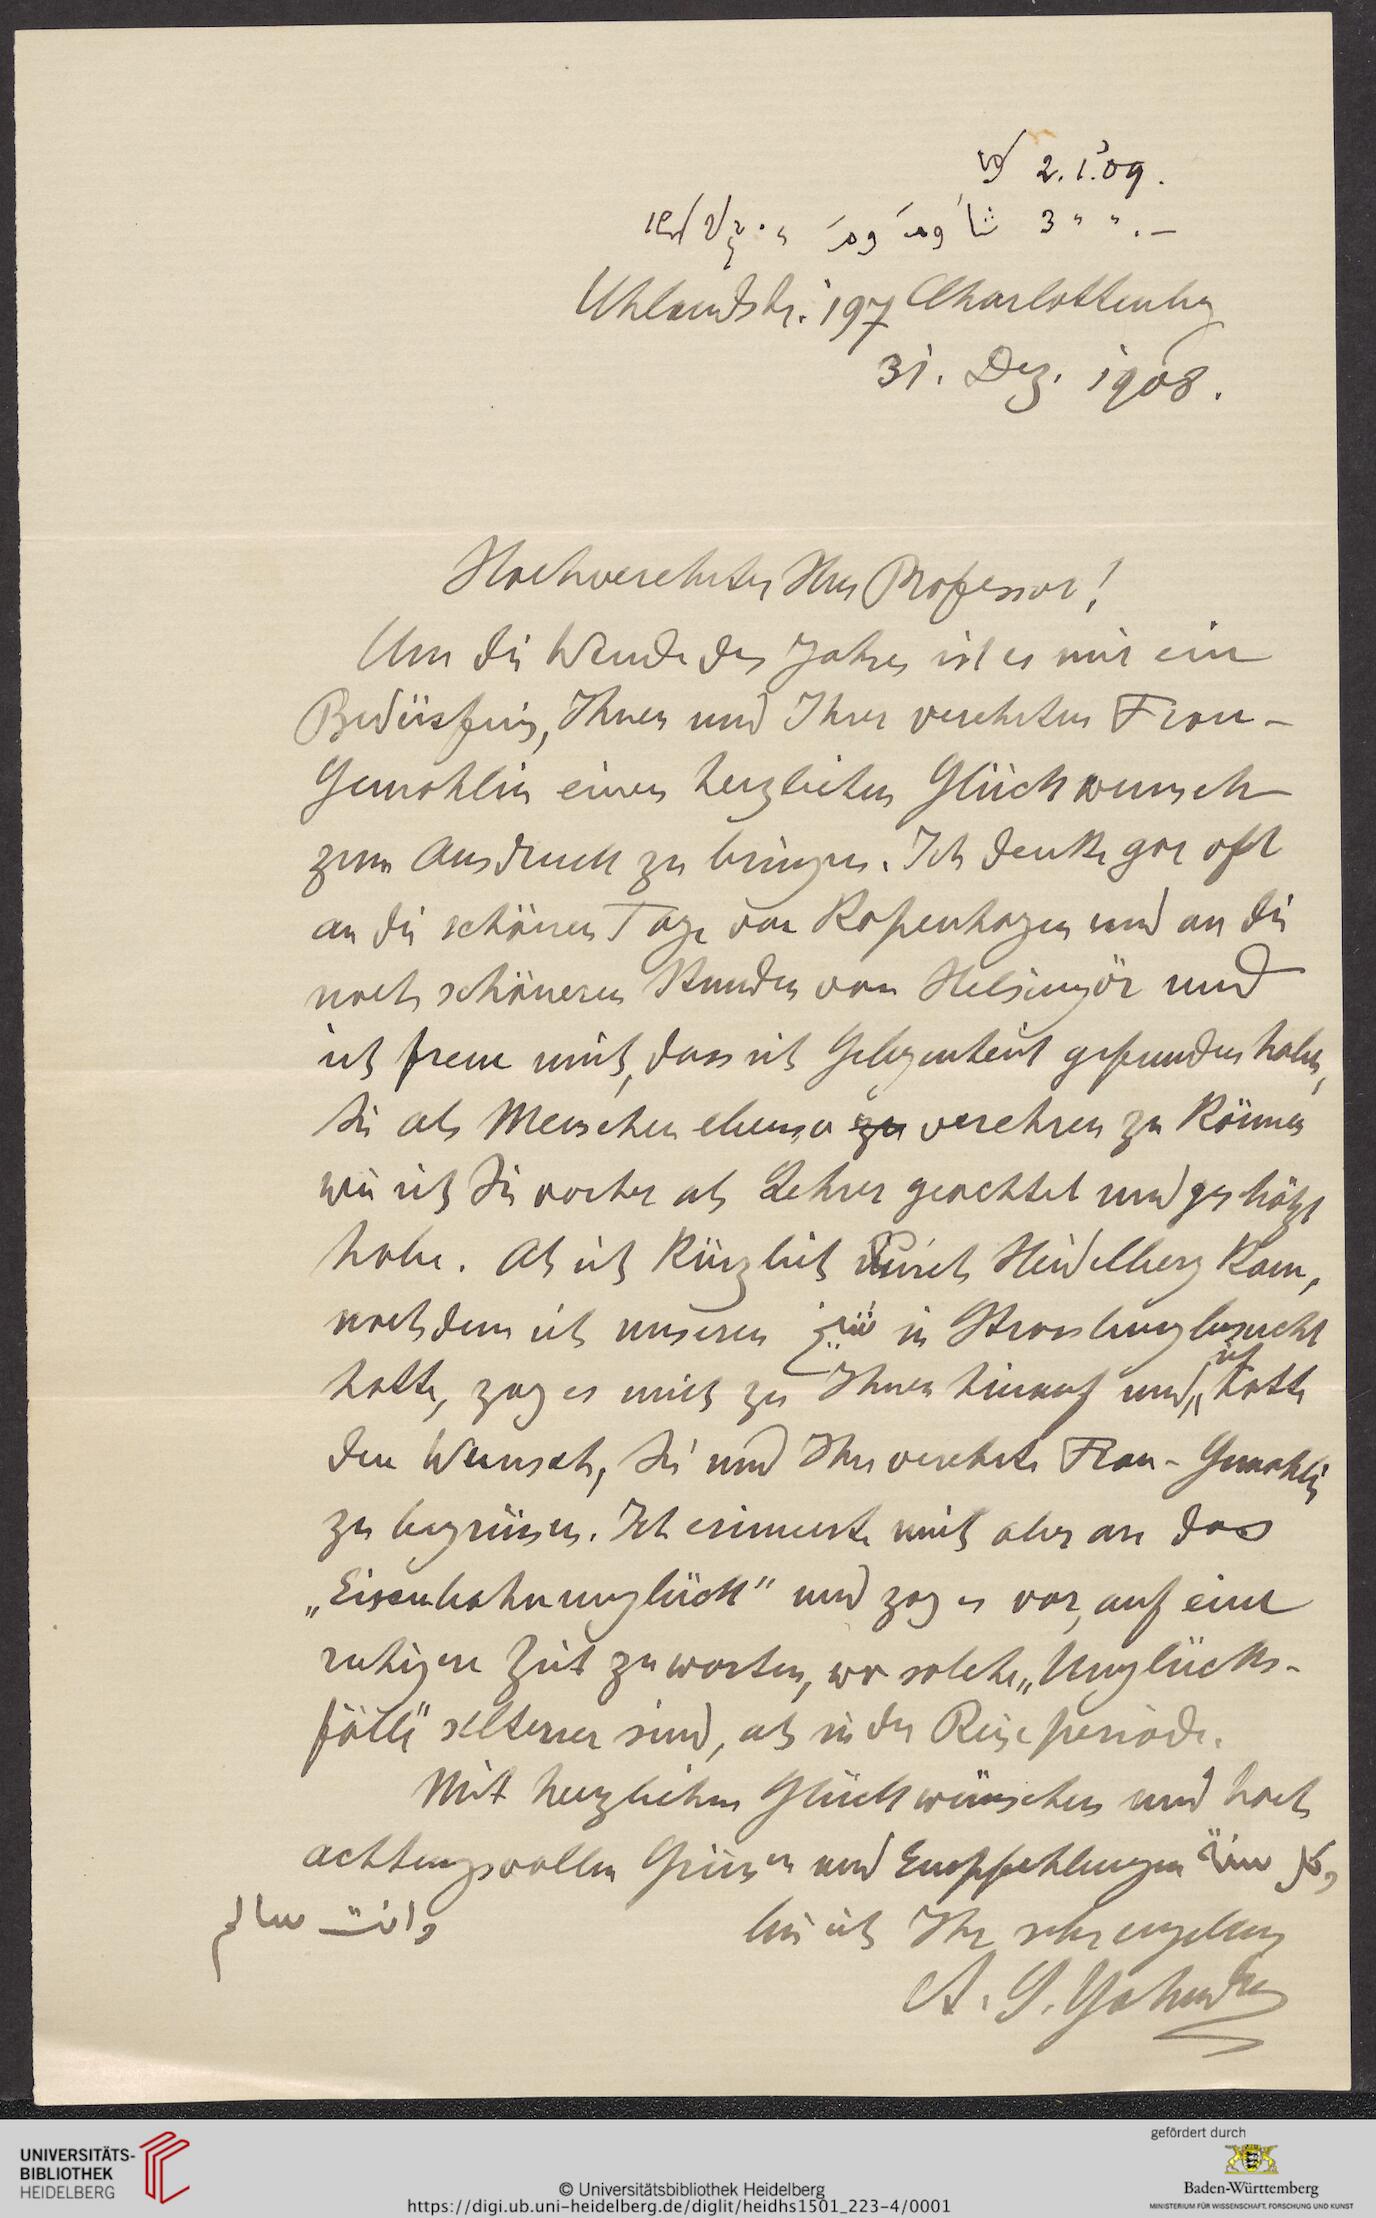 2. 1. 09.
3 " " . –
Uhlandstr. 197 Charlottenbg
31. Dez. 1908.
Hochverehrter Herr Professor!
Um die Wende des Jahres ist es mir ein
Bedürfnis, Ihnen und Ihrer verehrten Frau-
Gemahlin einen herzlichen Glückwunsch
zum Ausdruck zu bringen. Ich denke gar oft
an die schönen Tage von Kopenhagen und an die
noch schöneren Stunden von Helsingör und
ich freue mich, dass ich Gelegenheit gefunden habe,
Sie als Menschen ebenso zu verehren zu können
wie ich Sie vorher als Lehrer geachtet und geschätzt
habe. Als ich kürzlich durch Heidelberg kam,
nachdem ich unseren شيخ in Strassburg besucht
hatte, zog es mich zu Ihnen hinauf und ich hatte
den Wunsch, Sie und Ihre verehrte Frau-Gemahlin
zu begrüssen. Ich erinnerte mich aber an das
„Eisenbahnunglück" und zog es vor, auf eine
ruhigere Zeit zu warten, wo solche „Unglücks-
fälle" seltener sind, als in der Reiseperiode.
Mit herzlichen Glückwünschen und hoch
achtungsvollen Grüssen und Empfehlungen وكل سنة
وانت سالم
bin ich Ihr sehr ergebener
A. S. Yahuda
UNIVERSITÄTS-
BIBLIOTHEK
HEIDELBERG
© Universitätsbibliothek Heidelberg
https://digi.ub.uni-heidelberg.de/diglit/heidhs1501_223-4/0001
gefördert durch
Baden-Württemberg
MINISTERIUM FÜR WISSENSCHAFT, FORSCHUNG UND KUNST